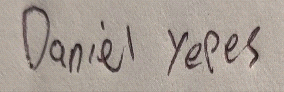 Daniel Yepes